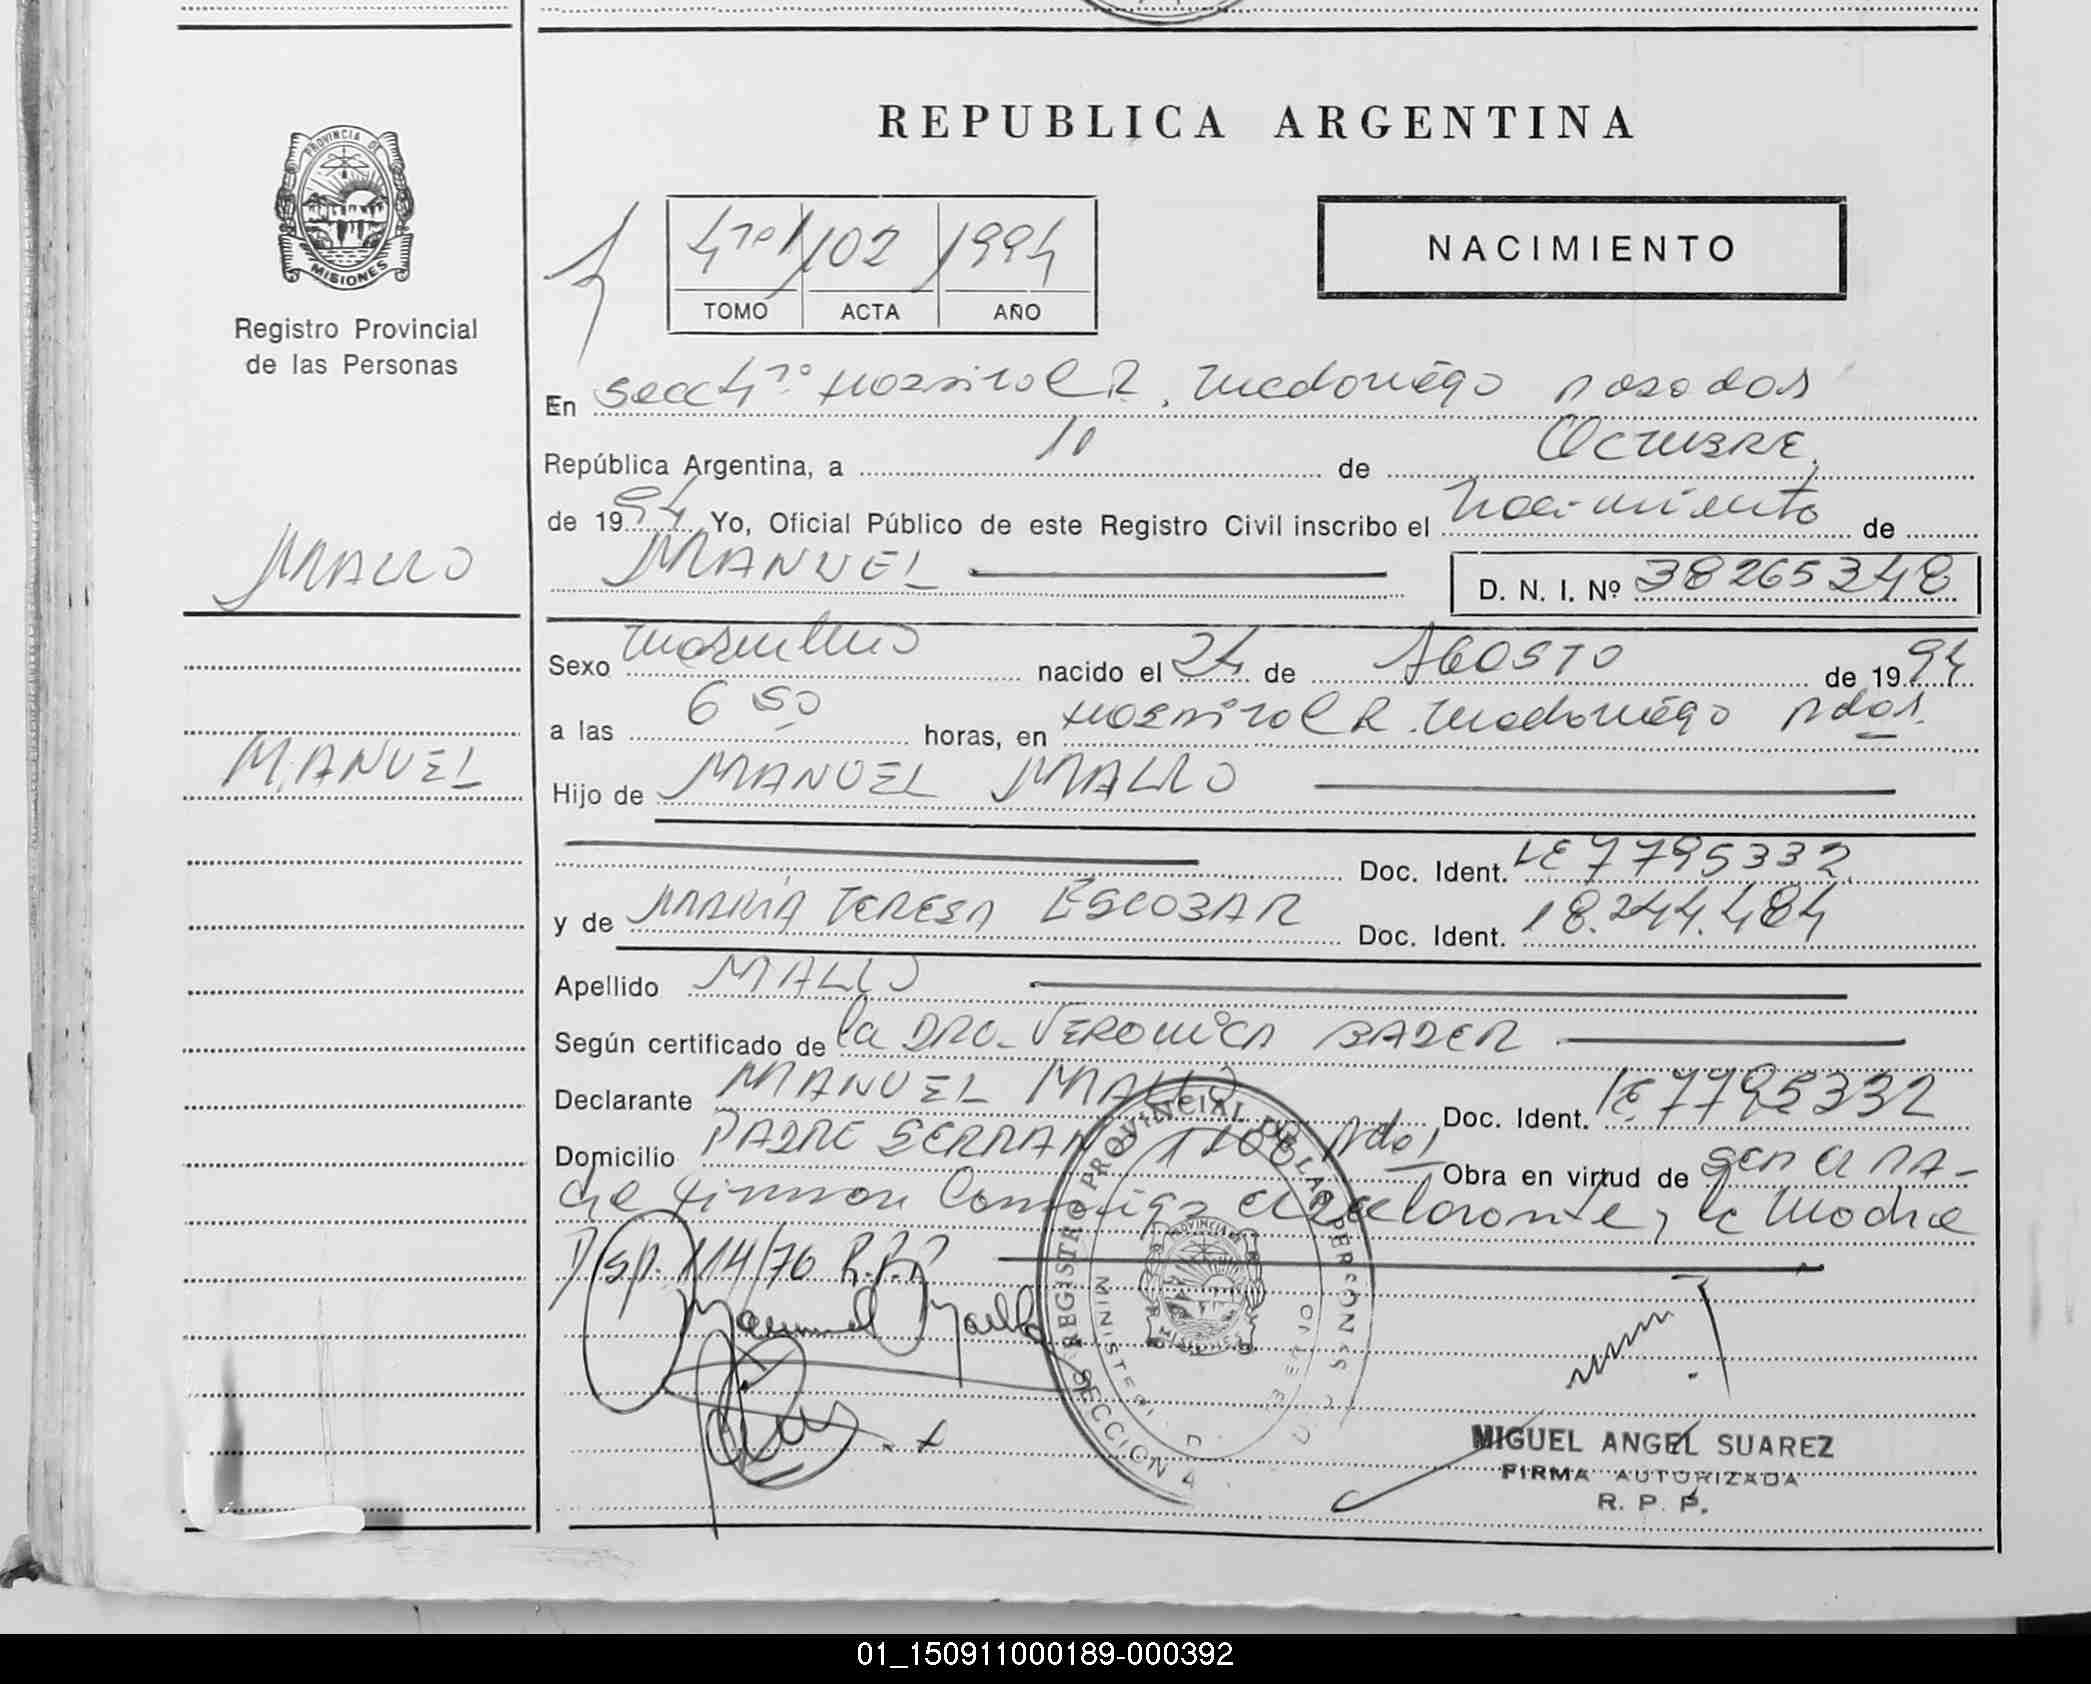 REPUBLICA ARGENTINA
PROVINCIA DE
MISIONES
Registro Provincial
de las Personas
4to 102 1994
TOMO ACTA AÑO
NACIMIENTO
En Secc 4ta Hospital R. Madariaga Posadas
República Argentina, a 10 de Octubre
de 1994 Yo, Oficial Público de este Registro Civil inscribo el nacimiento de
MALLO
MANUEL D. N. I. Nº 38265348
Sexo masculino nacido el 24 de AGOSTO de 1994
a las 6 50 horas, en Hospital R. Madariaga Pdas.
MANUEL
Hijo de MANUEL MALLO
Doc. Ident. LE 7795332
y de MARIA TERESA ESCOBAR Doc. Ident. 18.244.484
Apellido MALLO
Según certificado de la DRA. VERONICA BADER
Declarante MANUEL MALLO Doc. Ident. LE 7795332
Domicilio PADRE SERRANO Pdas Obra en virtud de ser el PA-
dre firman conmigo el declarante, la madre
Disp. 114/76 R.P.P
Manuel Mallo
REGISTRO PROVINCIAL DE LAS PERSONAS
SECCION 4
PROVINCIA DE
MISIONES
MIGUEL ANGEL SUAREZ
FIRMA AUTORIZADA
R. P. P.
01_150911000189-000392